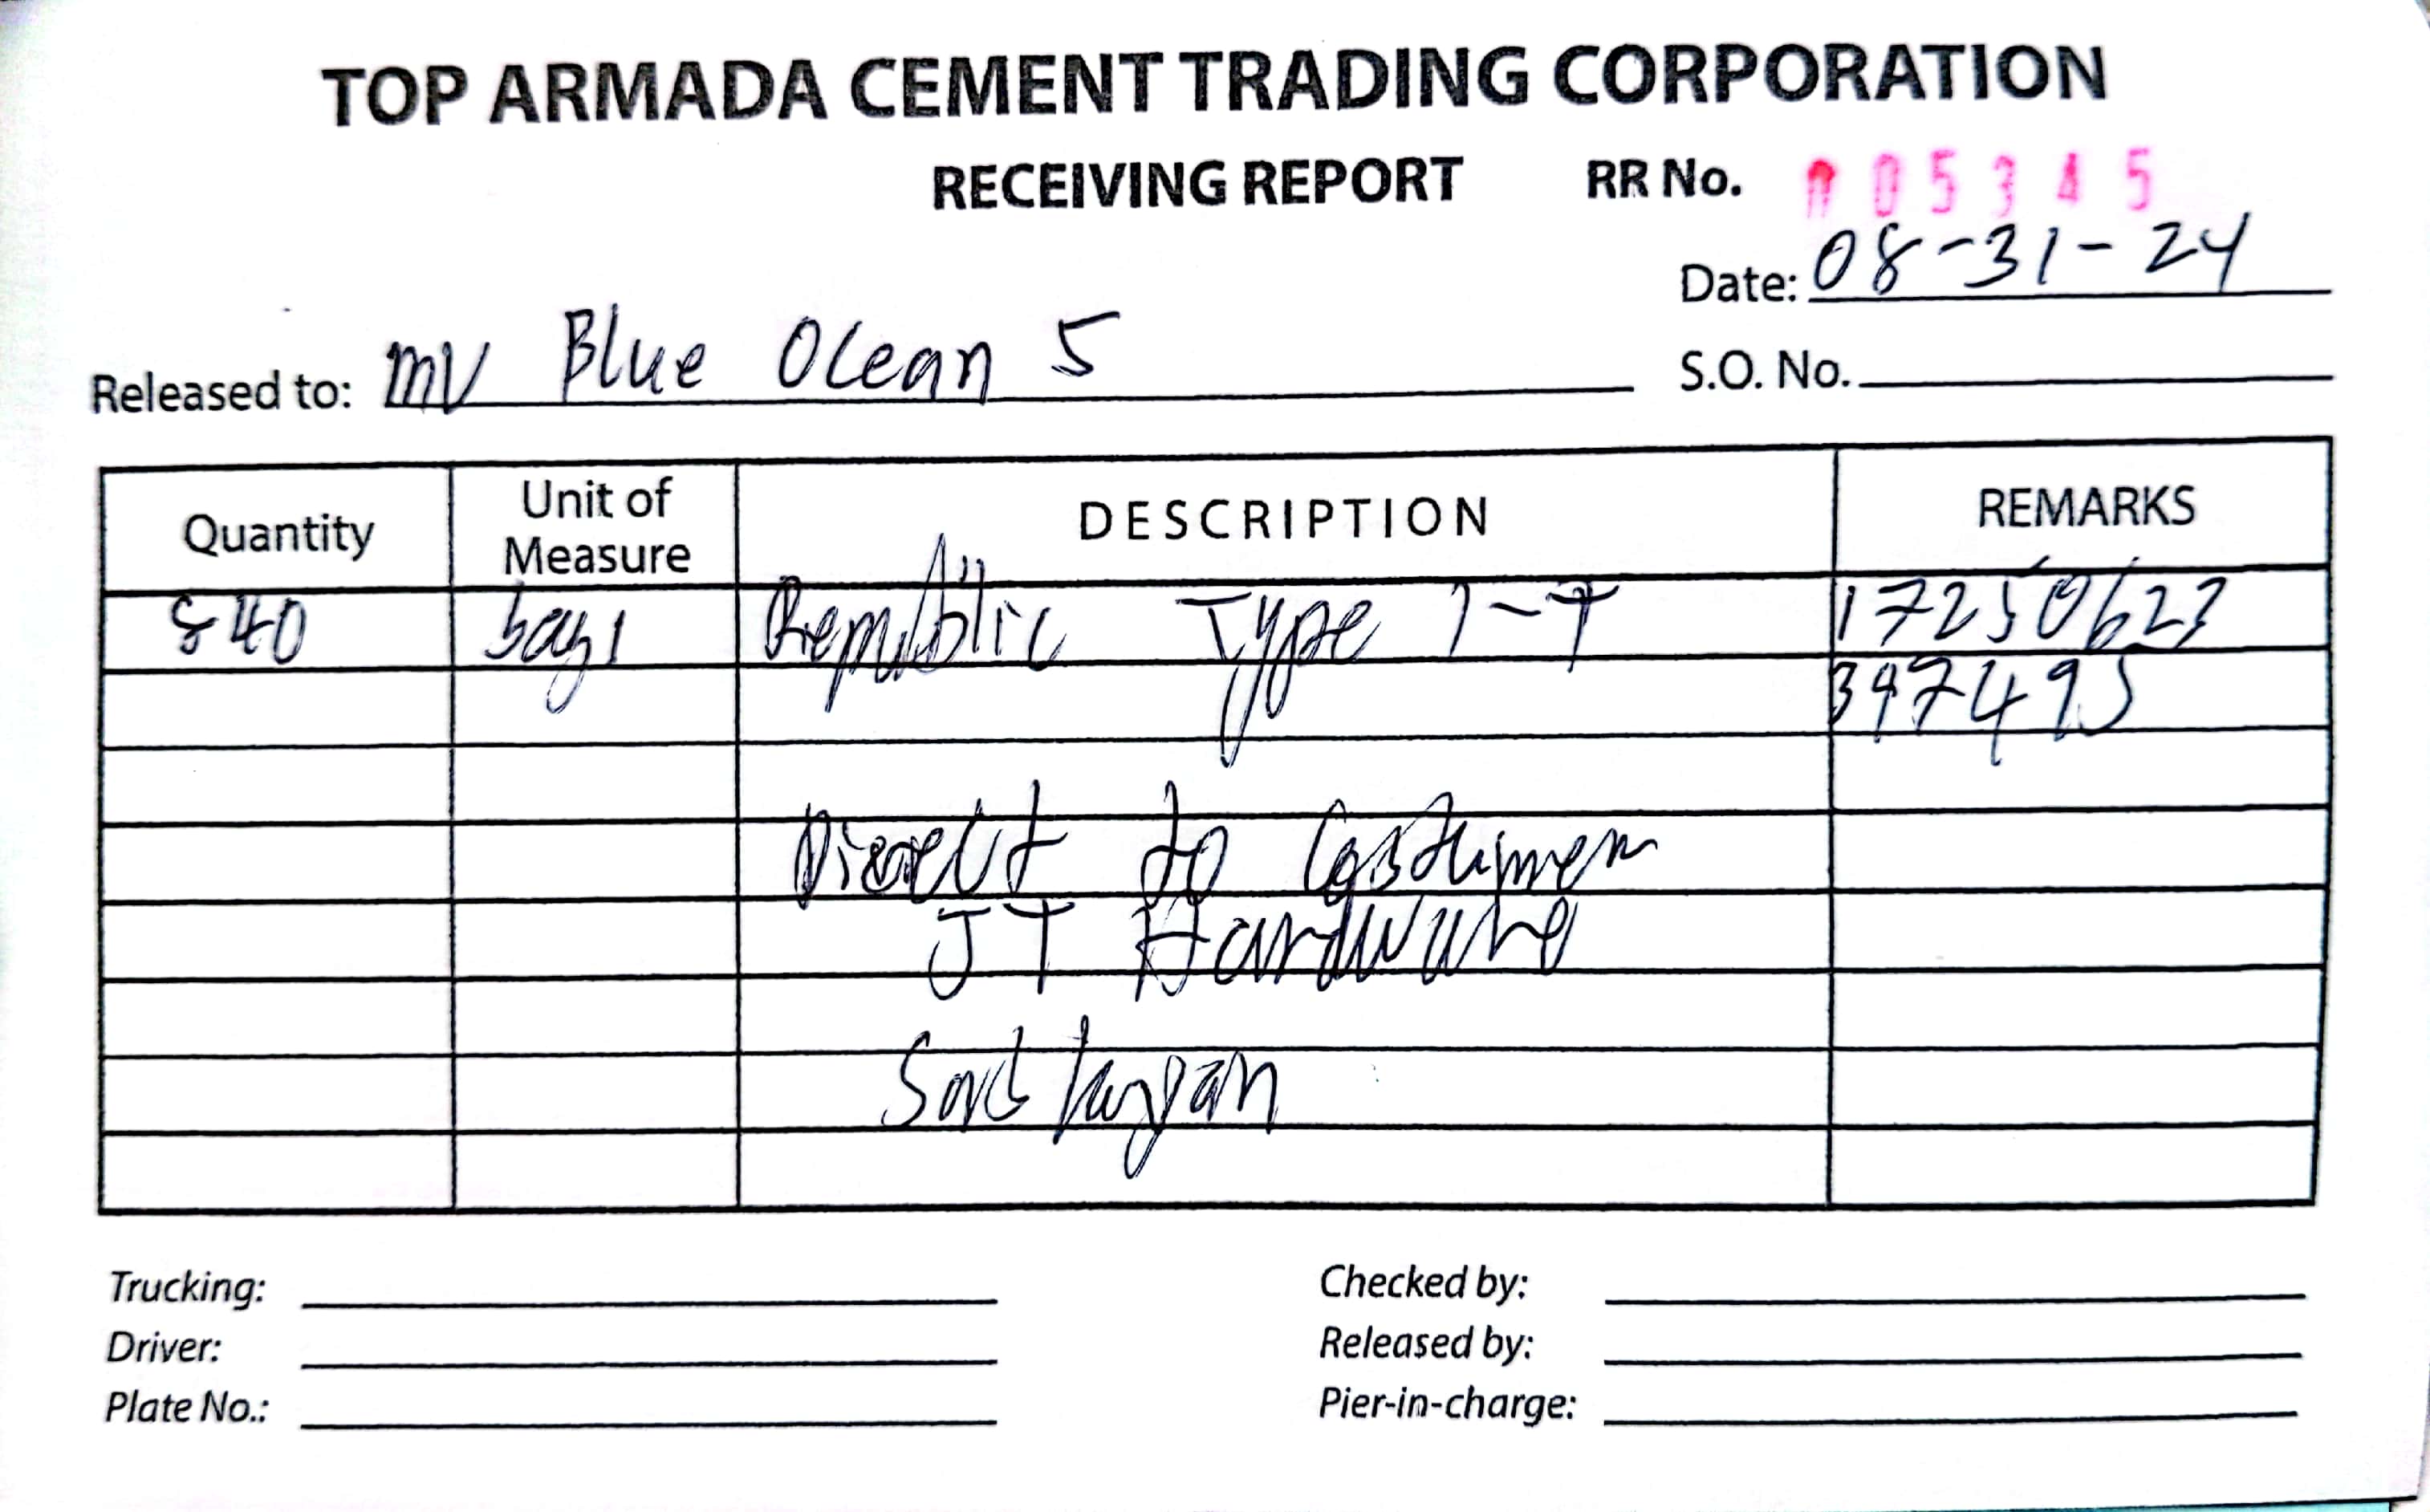 TOP ARMADA CEMENT TRADING CORPORATION
RECEIVING REPORT RR No. 005345
Date: 08-31-24
Released to: MV Blue Ocean 5 S.O. No.
Quantity Unit of Measure DESCRIPTION REMARKS
840 bags Republic Type 1-T 17250623
397495
Direct to Costumer
JT Hardware
Trucking: Checked by:
Driver: Released by:
Plate No.: Pier-in-charge: